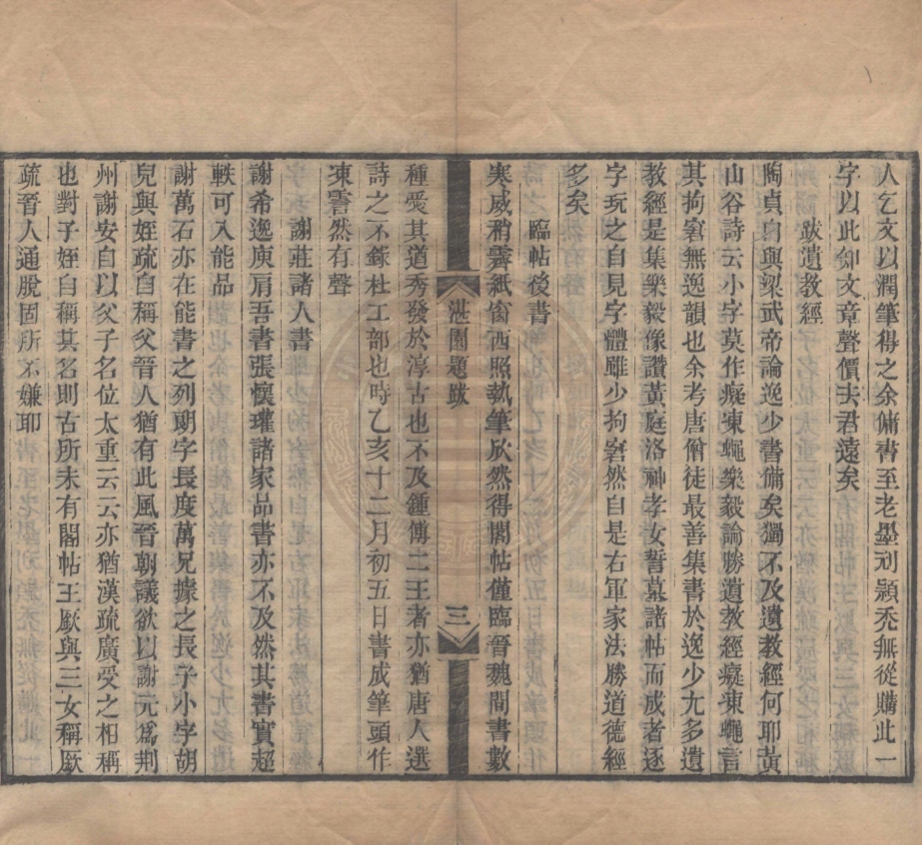 人乞文以潤筆得之余傭書至老墨刓穎禿無從購此一
字以此知文章聲價去君遠矣
跋遺教經
陶貞白與梁武帝論逸少書備矣獨不及遺教經何耶黃
山谷詩云小字莫作癡凍蠅樂毅論勝遺教經癡凍蠅言
其拘窘無逸韻也余考唐僧徒最善集書於逸少尤多遺
教經是集樂毅像讚黃庭洛神孝女誓墓諸帖而成者逐
字玩之自見字體雖少拘窘然自是右軍家法勝道德經
多矣
臨帖後書
寒威稍霽紙窗西照執筆欣然得閣帖僅臨晉魏間書數
湛園題跋
三
種愛其道秀發於淳古也不及鍾傅二王者亦猶唐人選
詩之不錄杜工部也時乙亥十二月初五日書成筆頭作
凍霅然有聲
謝莊諸人書
謝希逸庾肩吾書張懷瓘諸家品書亦不及然其書實超
軼可入能品
謝萬石亦在能書之列朗字長度萬兄據之長子小字胡
兒與姪疏自稱父晉人猶有此風晉朝議欲以謝元爲荆
州謝安自以父子名位太重云云亦猶漢疏廣受之相稱
也對子姪自稱其名則古所未有閣帖王厥與三女稱厥
疏晉人通脫固所不嫌耶